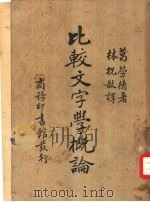 葛勞德著
林柷敔譯
比較文字學概論
商務印書館發行